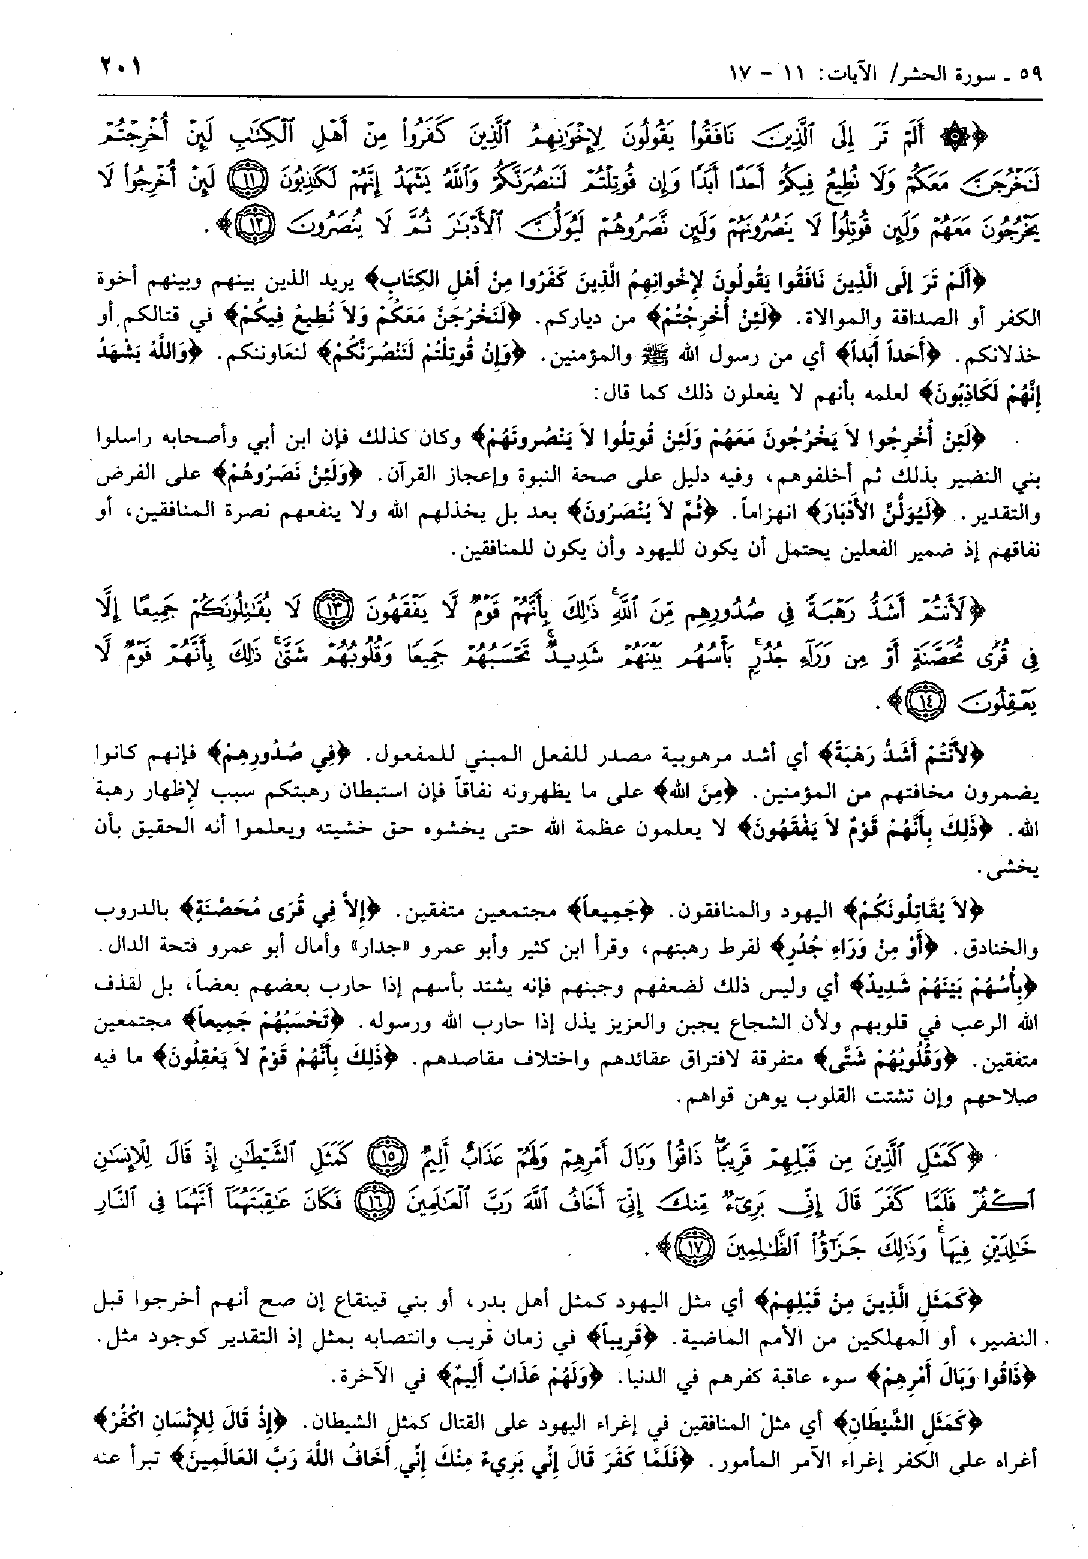 ٥٩ ـ سورة الحشر/ الآيات: ١١ - ١٧
٢٠١
﴿۞ أَلَمْ تَرَ إِلَى ٱلَّذِينَ نَافَقُوا۟ يَقُولُونَ لِإِخْوَٰنِهِمُ ٱلَّذِينَ كَفَرُوا۟ مِنْ أَهْلِ ٱلْكِتَٰبِ لَئِنْ أُخْرِجْتُمْ
لَنَخْرُجَنَّ مَعَكُمْ وَلَا نُطِيعُ فِيكُمْ أَحَدًا أَبَدًا وَإِن قُوتِلْتُمْ لَنَنصُرَنَّكُمْ وَٱللَّهُ يَشْهَدُ إِنَّهُمْ لَكَٰذِبُونَ ﴿١١﴾ لَئِنْ أُخْرِجُوا۟ لَا
يَخْرُجُونَ مَعَهُمْ وَلَئِن قُوتِلُوا۟ لَا يَنصُرُونَهُمْ وَلَئِن نَّصَرُوهُمْ لَيُوَلُّنَّ ٱلْأَدْبَٰرَ ثُمَّ لَا يُنصَرُونَ ﴿١٢﴾﴾.
﴿أَلَمْ تَرَ إِلَى الَّذِينَ نَافَقُوا يَقُولُونَ لإِخْوانِهِمُ الَّذِينَ كَفَرُوا مِنْ أَهْلِ الكِتَابِ﴾ يريد الذين بينهم وبينهم أخوة
الكفر أو الصداقة والموالاة. ﴿لَئِنْ أُخْرِجْتُمْ﴾ من دياركم. ﴿لَنَخْرُجَنَّ مَعَكُمْ وَلاَ نُطِيعُ فِيكُمْ﴾ في قتالكم أو
خذلانكم. ﴿أَحَداً أَبَداً﴾ أي من رسول الله ﷺ والمؤمنين. ﴿وَإِنْ قُوتِلْتُمْ لَنَنْصُرَنَّكُمْ﴾ لنعاوننكم. ﴿وَاللَّهُ يَشْهَدُ
إِنَّهُمْ لَكَاذِبُونَ﴾ لعلمه بأنهم لا يفعلون ذلك كما قال:
﴿لَئِنْ أُخْرِجُوا لاَ يَخْرُجُونَ مَعَهُمْ وَلَئِنْ قُوتِلُوا لاَ يَنْصُرونَهُمْ﴾ وكان كذلك فإن ابن أبي وأصحابه راسلوا
بني النضير بذلك ثم أخلفوهم، وفيه دليل على صحة النبوة وإعجاز القرآن. ﴿وَلَئِنْ نَصَرُوهُمْ﴾ على الفرض
والتقدير. ﴿لَيُوَلُّنَّ الأَدْبَارَ﴾ انهزاماً. ﴿ثُمَّ لاَ يُنْصَرُونَ﴾ بعد بل يخذلهم الله ولا ينفعهم نصرة المنافقين، أو
نفاقهم إذ ضمير الفعلين يحتمل أن يكون لليهود وأن يكون للمنافقين.
﴿لَأَنتُمْ أَشَدُّ رَهْبَةً فِى صُدُورِهِم مِّنَ ٱللَّهِ ۚ ذَٰلِكَ بِأَنَّهُمْ قَوْمٌ لَّا يَفْقَهُونَ ﴿١٣﴾ لَا يُقَٰتِلُونَكُمْ جَمِيعًا إِلَّا
فِى قُرًى مُّحَصَّنَةٍ أَوْ مِن وَرَآءِ جُدُرٍۭ ۚ بَأْسُهُم بَيْنَهُمْ شَدِيدٌ ۚ تَحْسَبُهُمْ جَمِيعًا وَقُلُوبُهُمْ شَتَّىٰ ۚ ذَٰلِكَ بِأَنَّهُمْ قَوْمٌ لَّا
يَعْقِلُونَ ﴿١٤﴾﴾.
﴿لأَنْتُمْ أَشَدُّ رَهْبَةً﴾ أي أشد مرهوبية مصدر للفعل المبني للمفعول. ﴿فِي صُدُورِهِمْ﴾ فإنهم كانوا
يضمرون مخافتهم من المؤمنين. ﴿مِنَ الله﴾ على ما يظهرونه نفاقاً فإن استبطان رهبتكم سبب لإظهار رهبة
الله. ﴿ذَلِكَ بِأَنَّهُمْ قَوْمٌ لاَ يَفْقَهُونَ﴾ لا يعلمون عظمة الله حتى يخشوه حق خشيته ويعلموا أنه الحقيق بأن
يخشى.
﴿لاَ يُقَاتِلُونَكُمْ﴾ اليهود والمنافقون. ﴿جَمِيعاً﴾ مجتمعين متفقين. ﴿إِلاَّ فِي قُرًى مُحَصَّنَةٍ﴾ بالدروب
والخنادق. ﴿أَوْ مِنْ وَرَاءِ جُدُرٍ﴾ لفرط رهبتهم، وقرأ ابن كثير وأبو عمرو «جدار» وأمال أبو عمرو فتحة الدال.
﴿بِأْسُهُمْ بَيْنَهُمْ شَدِيدٌ﴾ أي وليس ذلك لضعفهم وجبنهم فإنه يشتد بأسهم إذا حارب بعضهم بعضاً، بل لقذف
الله الرعب في قلوبهم ولأن الشجاع يجبن والعزيز يذل إذا حارب الله ورسوله. ﴿تَحْسَبُهُمْ جَمِيعاً﴾ مجتمعين
متفقين. ﴿وَقُلُوبُهُمْ شَتَّى﴾ متفرقة لافتراق عقائدهم واختلاف مقاصدهم. ﴿ذَلِكَ بِأَنَّهُمْ قَوْمٌ لاَ يَعْقِلُونَ﴾ ما فيه
صلاحهم وإن تشتت القلوب يوهن قواهم.
﴿كَمَثَلِ ٱلَّذِينَ مِن قَبْلِهِمْ قَرِيبًا ۖ ذَاقُوا۟ وَبَالَ أَمْرِهِمْ وَلَهُمْ عَذَابٌ أَلِيمٌ ﴿١٥﴾ كَمَثَلِ ٱلشَّيْطَٰنِ إِذْ قَالَ لِلْإِنسَٰنِ
ٱكْفُرْ فَلَمَّا كَفَرَ قَالَ إِنِّى بَرِىٓءٌ مِّنكَ إِنِّىٓ أَخَافُ ٱللَّهَ رَبَّ ٱلْعَٰلَمِينَ ﴿١٦﴾ فَكَانَ عَٰقِبَتَهُمَآ أَنَّهُمَا فِى ٱلنَّارِ
خَٰلِدَيْنِ فِيهَا ۚ وَذَٰلِكَ جَزَٰٓؤُا۟ ٱلظَّٰلِمِينَ ﴿١٧﴾﴾.
﴿كَمَثَلِ الَّذِينَ مِنْ قَبْلِهِمْ﴾ أي مثل اليهود كمثل أهل بدر، أو بني قينقاع إن صح أنهم أخرجوا قبل
النضير، أو المهلكين من الأمم الماضية. ﴿قَرِيباً﴾ في زمان قريب وانتصابه بمثل إذ التقدير كوجود مثل.
﴿ذَاقُوا وَبَالَ أَمْرِهِمْ﴾ سوء عاقبة كفرهم في الدنيا. ﴿وَلَهُمْ عَذَابٌ أَلِيمٌ﴾ في الآخرة.
﴿كَمَثَلِ الشَّيطَانِ﴾ أي مثل المنافقين في إغراء اليهود على القتال كمثل الشيطان. ﴿إِذْ قَالَ لِلإِنْسَانِ اكْفُرْ﴾
أغراه على الكفر إغراء الآمر المأمور. ﴿فَلَمَّا كَفَرَ قَالَ إِنِّي بَرِيءٌ مِنْكَ إِنِّي أَخَافُ اللَّهَ رَبَّ العَالَمِينَ﴾ تبرأ عنه